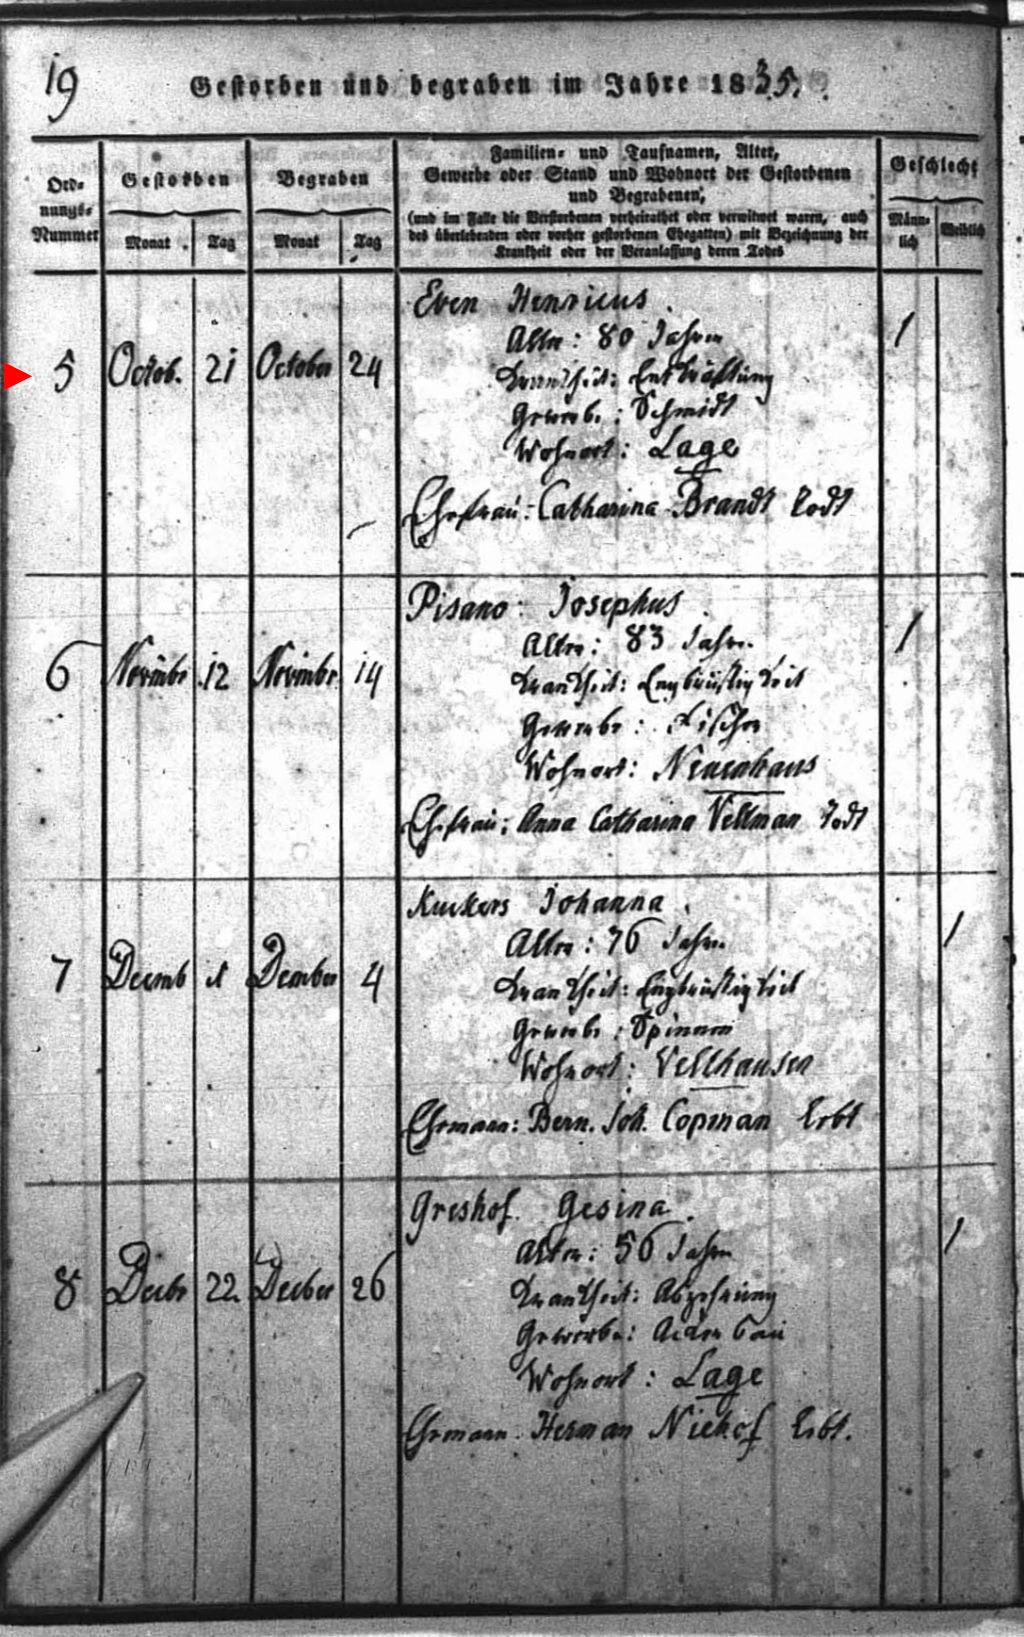 19
Gestorben und begraben im Jahre 1835.
Ord-
nungs-
Nummer
Gestorben
Monat. Tag
Begraben
Monat Tag
Familien- und Taufnamen, Alter,
Gewerbe oder Stand und Wohnort der Gestorbenen
und Begrabenen,
(und im Falle die Verstorbenen verheirathet oder verwitwet waren, auch
des überlebenden oder vorher gestorbenen Ehegatten) mit Bezeichnung der
Krankheit oder der Veranlassung deren Todes
Geschlecht
Männ-
lich
Weiblich
Even Henricus.
Alter: 80 Jahren
5 Octob. 21 October 24
1
Krankheit: Entkräftung
Gewerbe: Schmidt
Wohnort: Lage
Ehefrau: Catharina Brandt Todt
Pisano: Josephus.
Alter: 83 Jahre.
1
6 Novembr 12 Novembr 14
Krankheit: Engbrüstigkeit
Gewerbe: Fischer
Wohnort: Neuenhaus
Ehefrau: Anna Catharina Veltman Todt
Kuckers Johanna.
Alter: 76 Jahre
1
7 Decmb 1 December 4
Krankheit: Engbrüstigkeit
Gewerbe: Spinnen
Wohnort: Velthausen
Ehemann: Bern. Joh. Copman Lebt
Greshof Gesina.
Alter: 56 Jahre
1
8 Decbr 22. Decber 26
Krankheit: Abzehrung
Gewerbe: Ackerbau
Wohnort: Lage
Ehemann Herman Niehof Lebt.